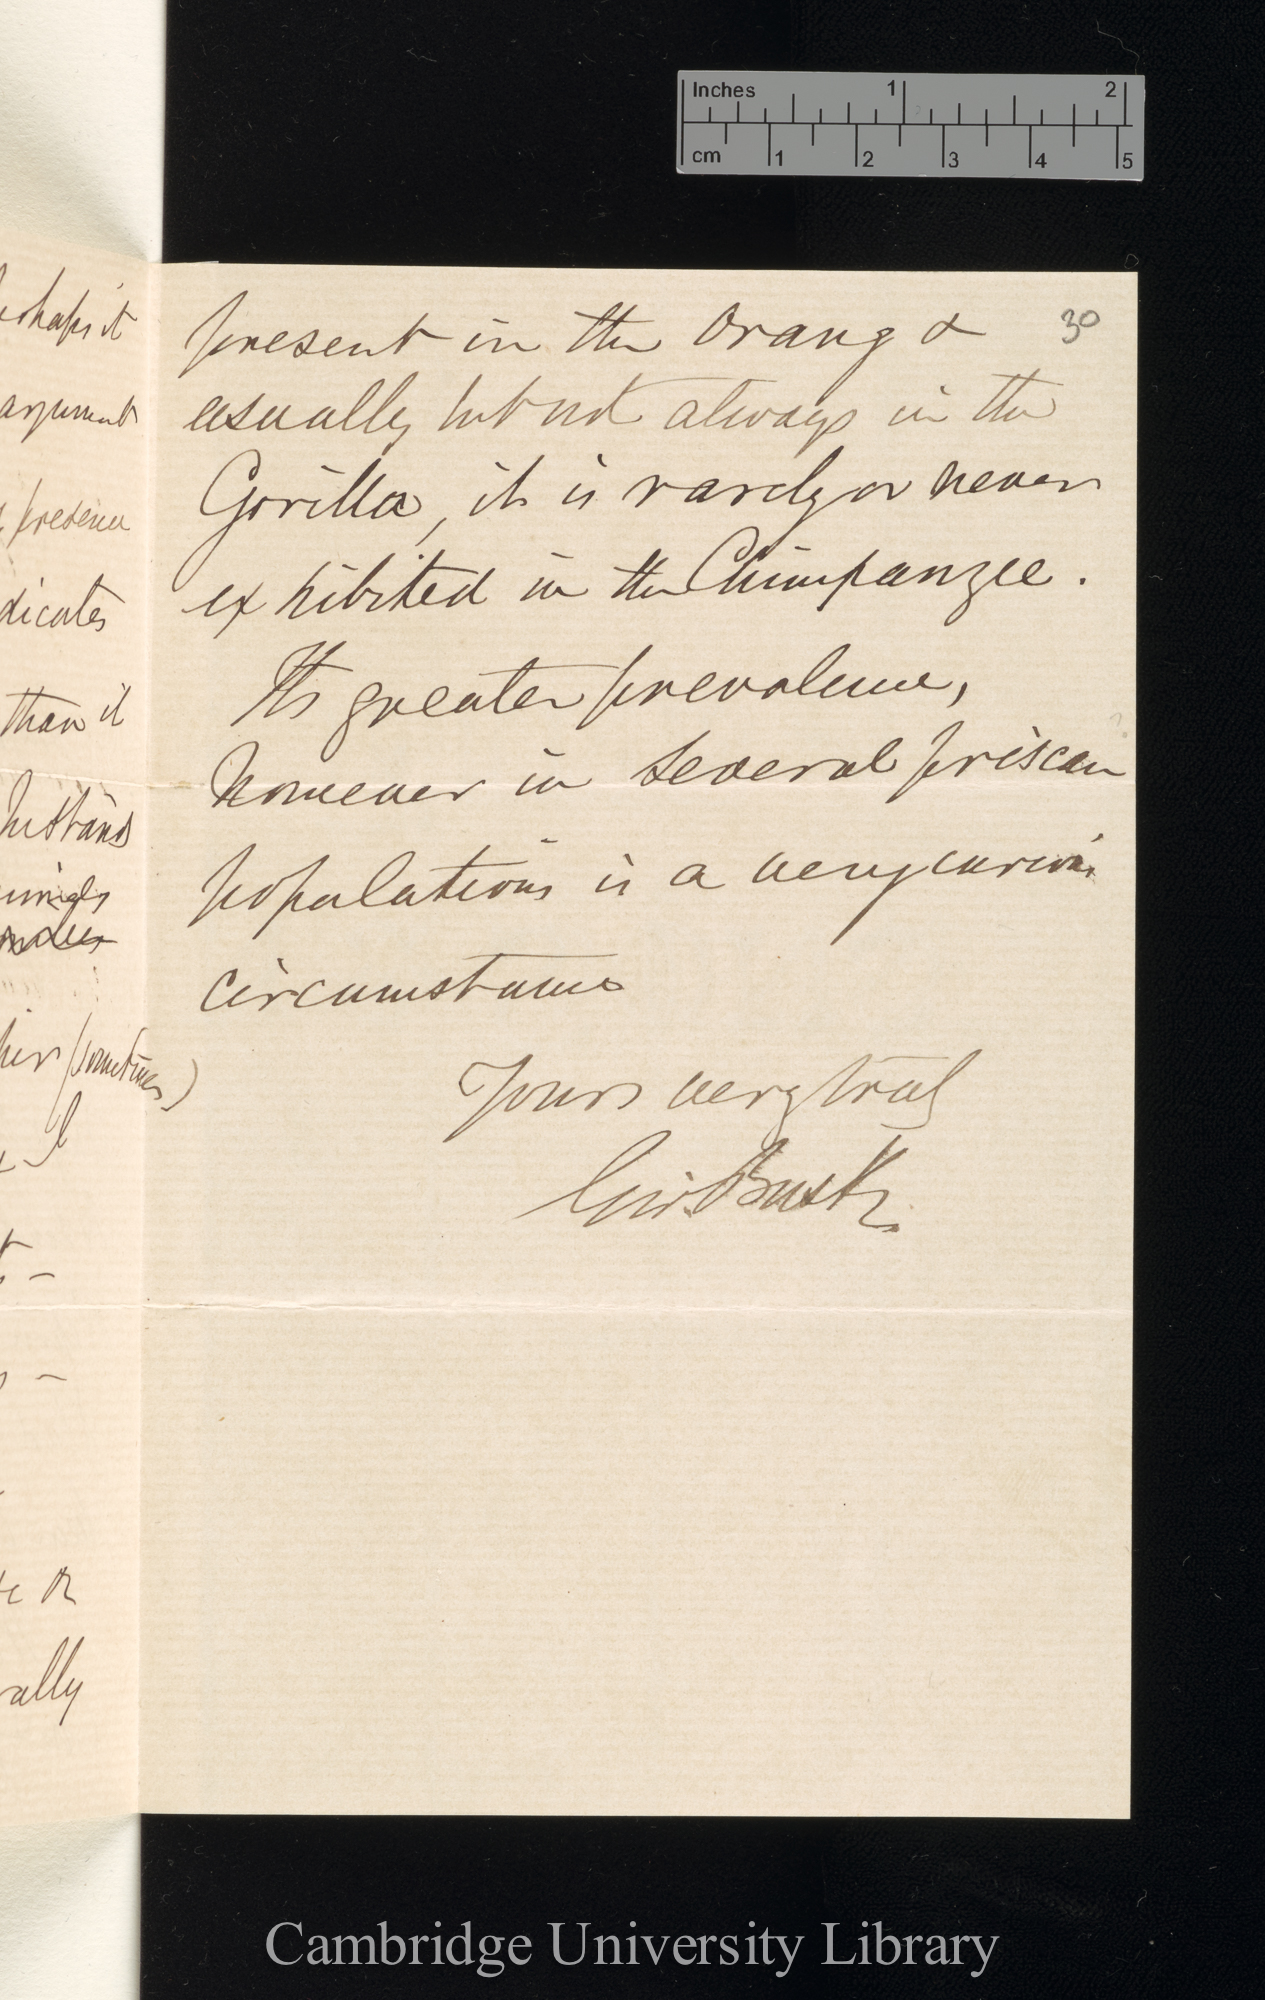 Inches 1 2
cm 1 2 3 4 5
perhaps it
argument
presence
dicates
than it
(sometimes)
& I
rally
30
present in the Orang &
usually but not always in the
Gorilla, it is rarely or never
exhibited in the Chimpanzee.
Its greater prevalence,
however in several priscan
populations is a very curious
circumstance
Yours very truly
Geo. Busk
Cambridge University Library